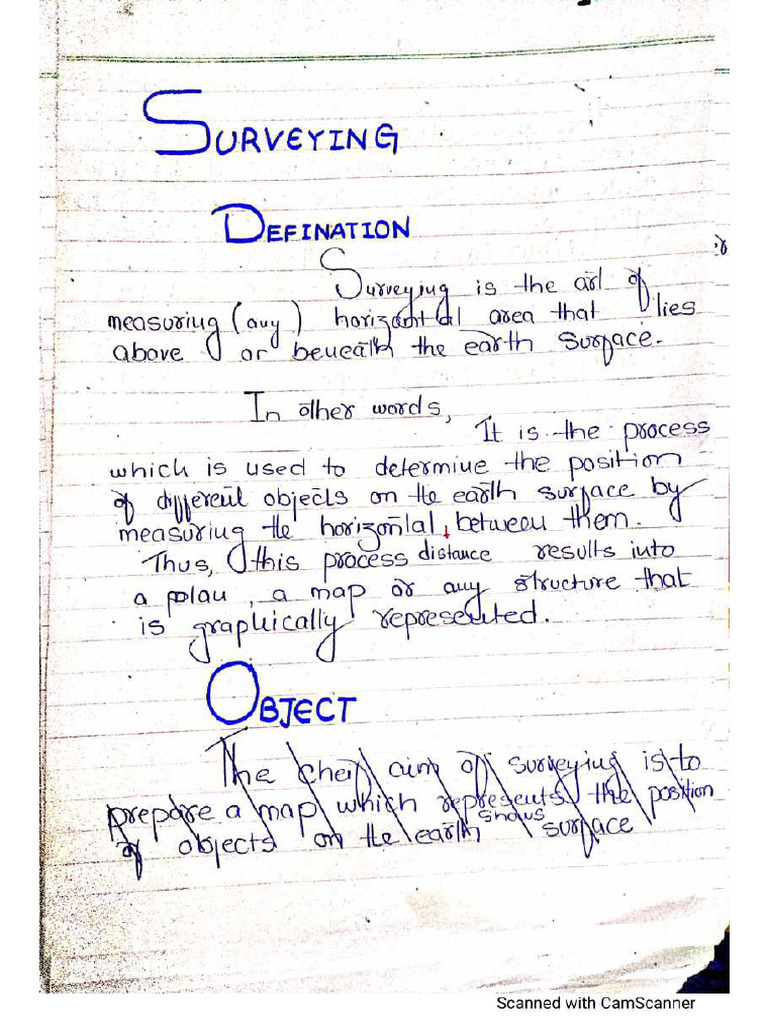 SURVEYING
DEFINATION
Surveying is the art of
measuring (any) horizontal area that lies
above or beneath the earth surface.
In other words,
It is the process
which is used to determine the position
of different objects on the earth surface by
measuring the horizontal between them.
Thus, this process distance results into
a plan, a map or any structure that
is graphically represented.
OBJECT
The cheif aim of surveying is to
prepare a map which represents the position
shows
of objects on the earth surface
Scanned with CamScanner